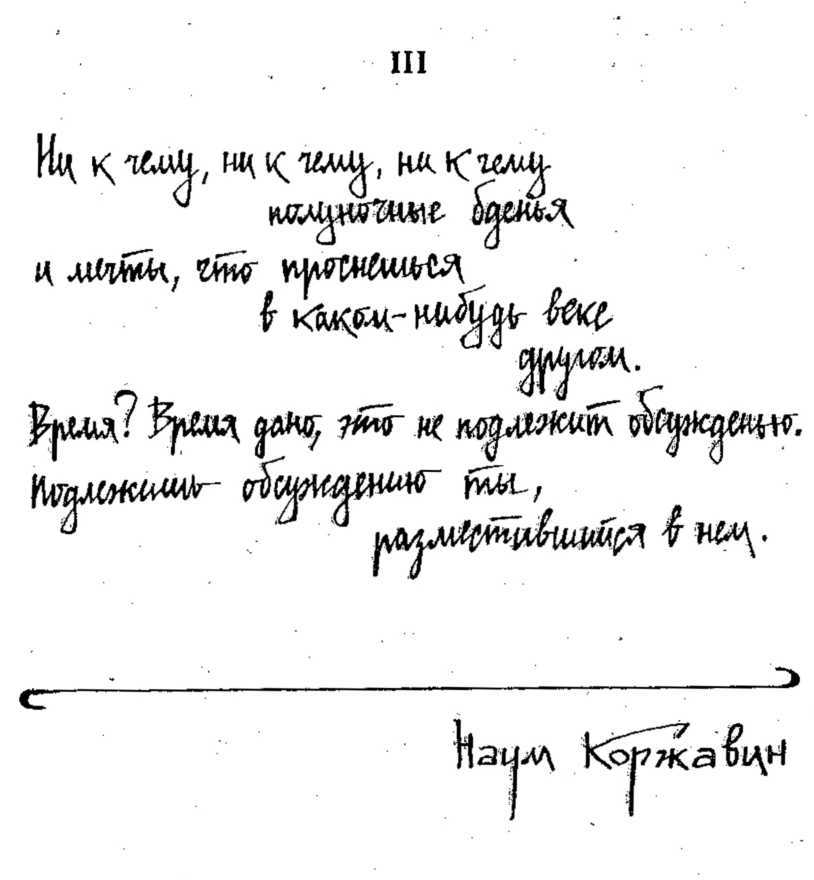 III
Ни к чему, ни к чему, ни к чему
полуночные бденья
и мечты, что проснешься
в каком-нибудь веке
другом.
Время? Время дано, это не подлежит обсужденью.
Подлежишь обсуждению ты,
разместившийся в нем.
Наум Коржавин